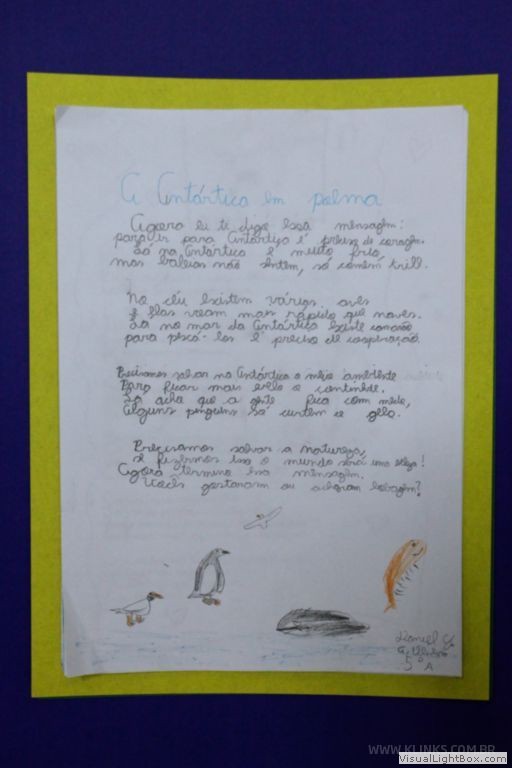 A Antártica em poema
Agora eu ti digo essa mensagem:
para ir para Antártica é preciso de coragem.
Lá na Antártica é muito frio,
mas baleias não sentem, só comem krill.
No céu existem várias aves
E elas voam mais rápido que naves.
Lá no mar da Antártica existe camarão
para pescá-los é preciso de inspiração.
Precisamos salvar na Antártica o meio ambiente
Para ficar mais belo o continente.
Só acha que a gente fica com medo,
Alguns penguins só curtem o gelo.
Precisamos salvar a natureza,
se fizermos isso o mundo será uma beleza!
Agora termino essa mensagem.
Vocês gostaram ou acharam bobagem?
5º A
WWW.KLINKS.COM.BR
VisualLightBox.com